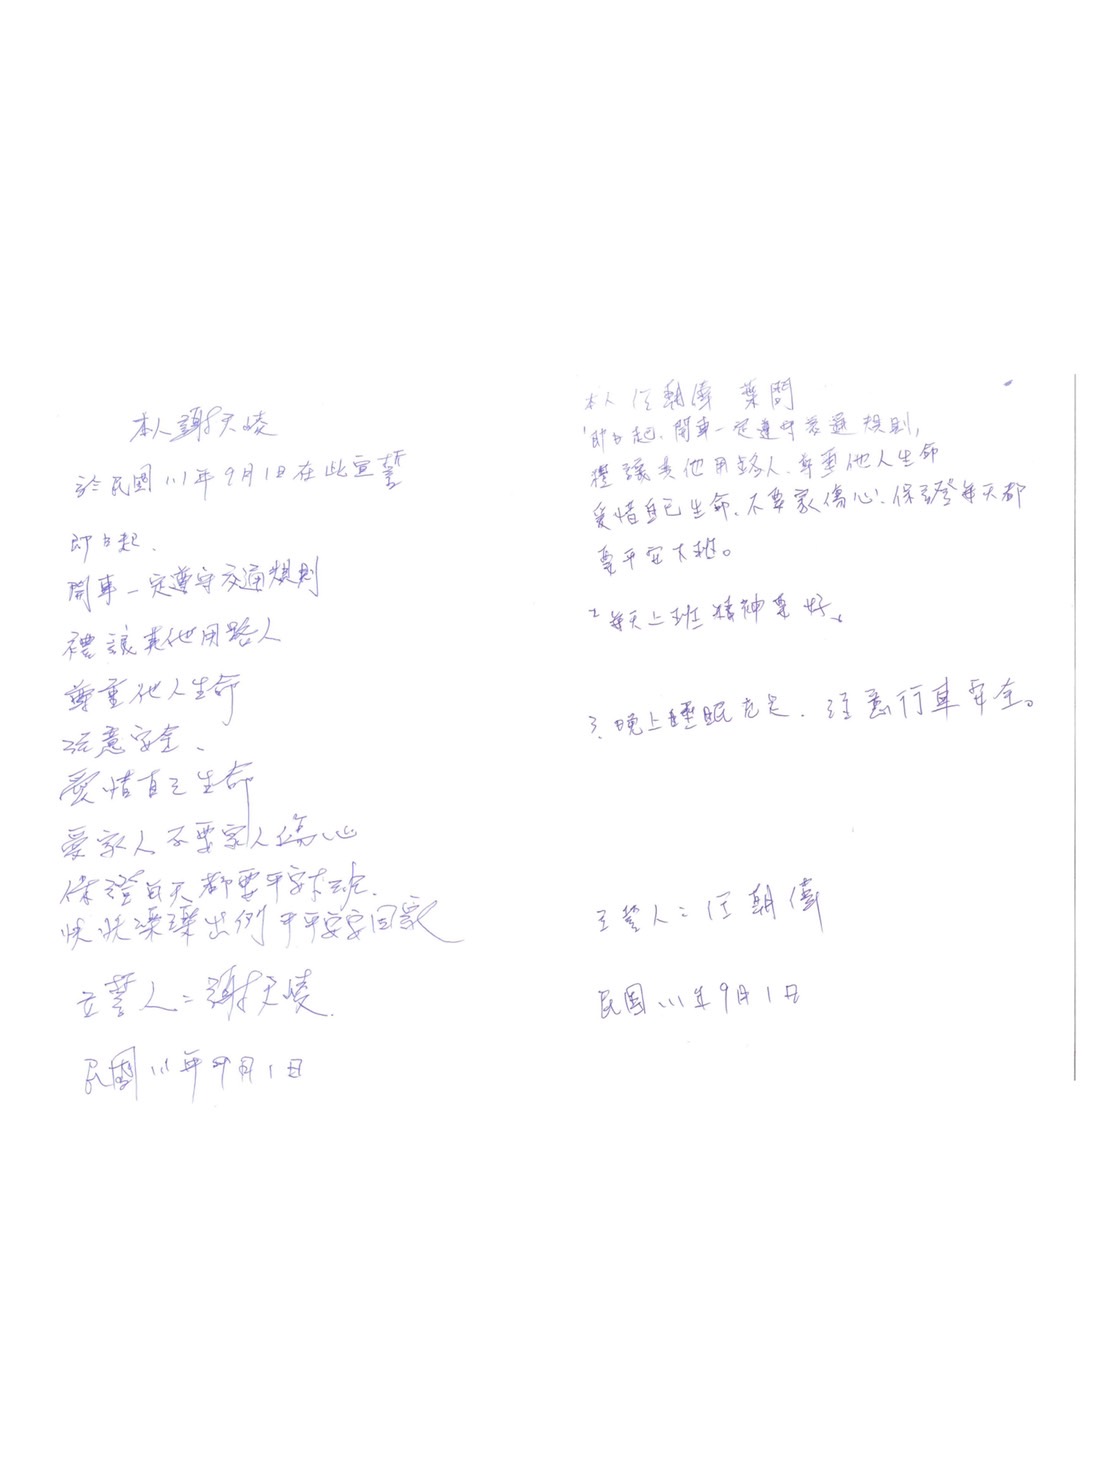 本人謝天崚
於民國111年9月1日在此宣誓
即日起、
開車一定遵守交通規則
禮讓其他用路人
尊重他人生命
注意安全、
愛惜自己生命
愛家人不要家人傷心
保證每天都要平安下班.
快快樂樂出 平平安安回家
立誓人:謝天崚.
民國111年9月1日
本人 任朝偉 葉問
1即日起、開車一定遵守交通規則,
禮讓其他用路人、尊重他人生命
愛惜自己生命、不要家傷心、保證每天都
要平安下班。
2 每天上班精神要好。
3.晚上睡眠充足、注意行車安全。
立誓人:任朝偉
民國111年9月1日